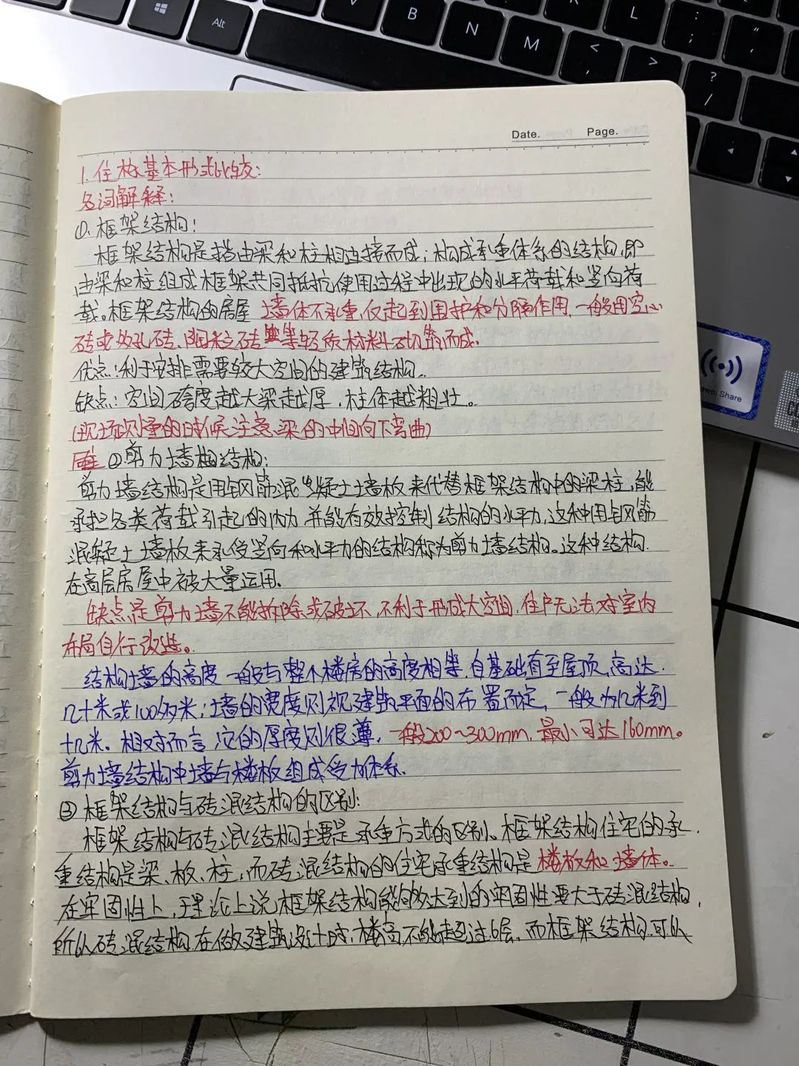 Alt
V
B
N
M
L
<
>
?
/
Date.
Page.
1. 住构基本形式比较:
名词解释:
①. 框架结构:
框架结构是指由梁和柱相连接而成;构成承重体系的结构,即
由梁和柱组成框架共同抵抗使用过程中出现的水平荷载和竖向荷
载。框架结构的房屋 墙体不承重,仅起到围护和分隔作用,一般用空心
砖或多孔砖、陶粒砖 等轻质材料砌筑而成。
优点:利于安排需要较大空间的建筑结构。
缺点:空间跨度越大梁越厚,柱体越粗壮。
(现场测量的时候注意,梁的中间向下弯曲)
②剪力墙构结构:
剪力墙结构是用钢筋混凝土墙板来代替框架结构中的梁柱,能
承担各类荷载引起的内力,并能有效控制结构的水平力,这种用钢筋
混凝土墙板来承受竖向和水平力的结构称为剪力墙结构。这种结构
在高层房屋中被大量运用。
缺点是剪力墙不能拆除或破坏,不利于形成大空间,住户无法对室内
布局自行改造。
结构墙的高度一般与整个楼房的高度相等,自基础直至屋顶,高达
几十米或100多米;墙的宽度则视建筑平面的布置而定,一般为几米到
十几米。相对而言,它的厚度则很薄,一般200~300mm,最小可达160mm。
剪力墙结构中墙与楼板组成受力体系。
③ 框架结构与砖混结构的区别:
框架结构与砖混结构主要是承重方式的区别。框架结构住宅的承
重结构是梁、板、柱,而砖混结构的住宅承重结构是楼板和墙体。
在牢固性上,理论上说框架结构能够达到的牢固性要大于砖混结构,
所以砖混结构在做建筑设计时,楼高不能超过6层,而框架结构可以
Share